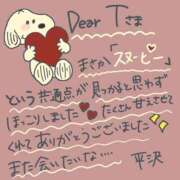 Dear Tさま
まさか「スヌーピー」
という共通点が見つかると思わず
ほっこりしました たくさん甘えさせて
くれてありがとうございました
また会いたいな....
平沢